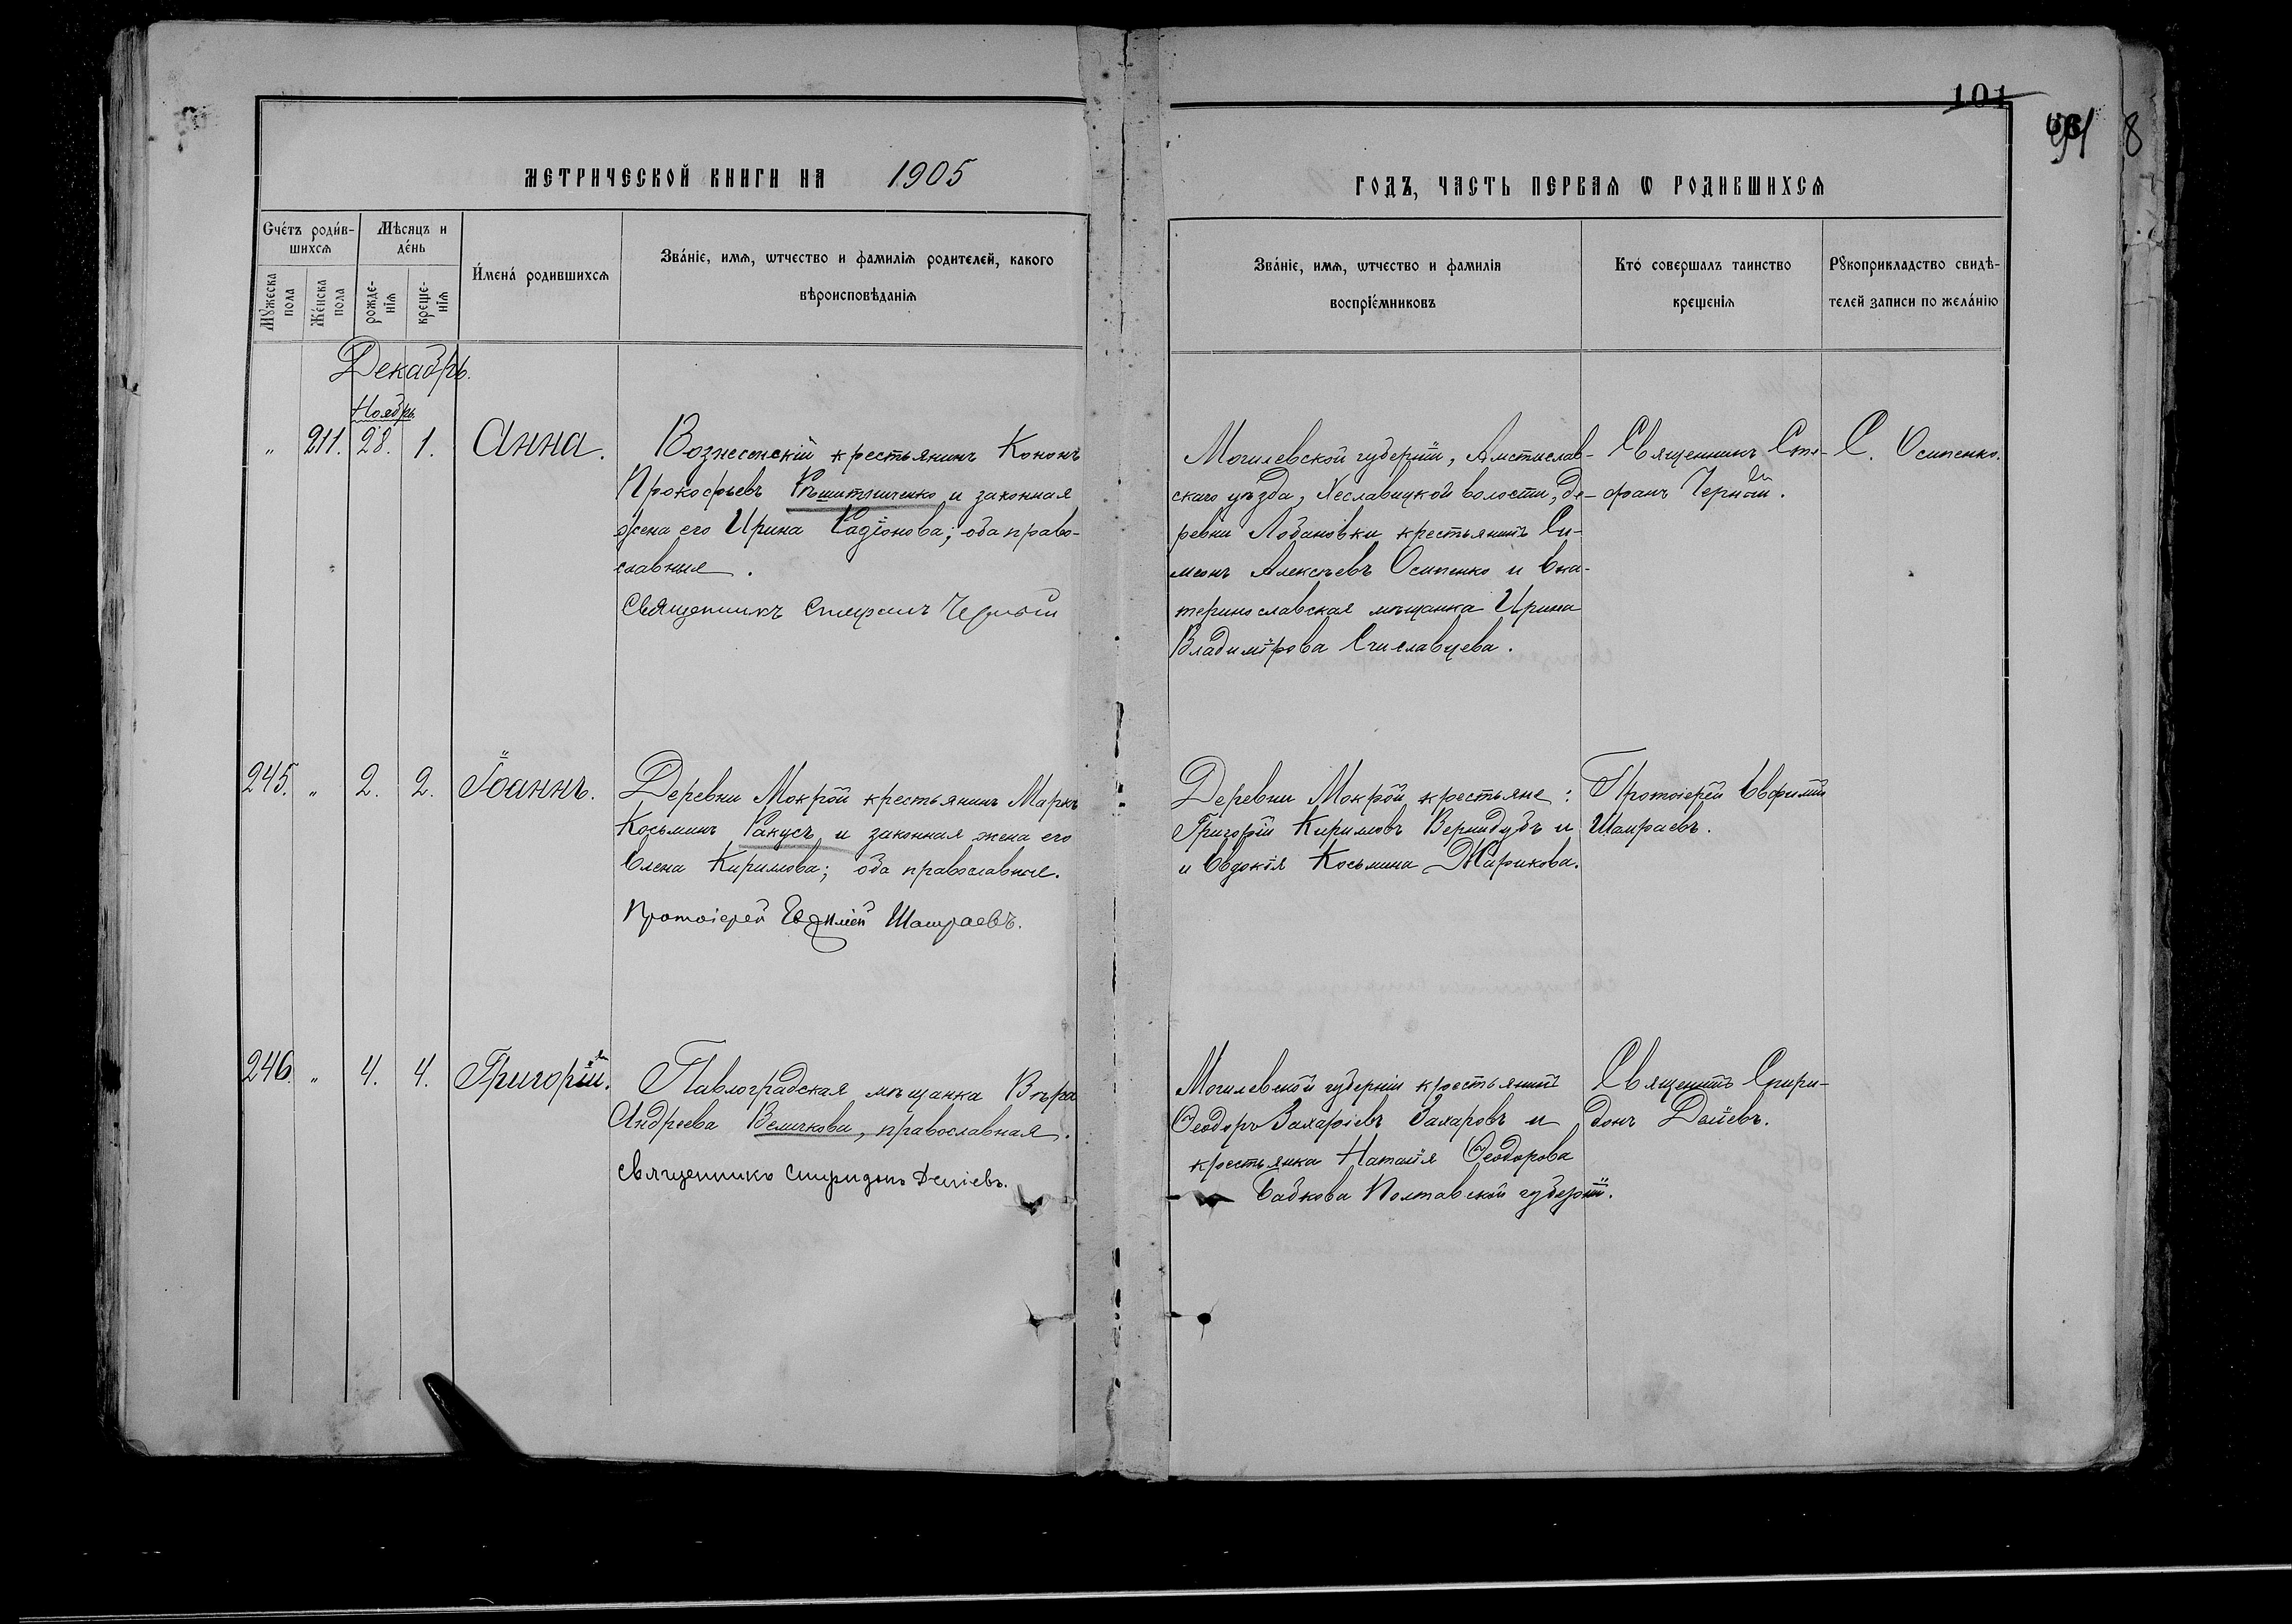 101
91 8
МЕТРИЧЕСКОЙ КНИГИ НА 1905
ГОДЪ, ЧАСТЬ ПЕРВАѦ Ѡ РОДИВШИХСѦ
Счётъ роди́в-
шихсѧ
Мѣсяцъ и
де́нь
Мꙋ́жеска
пола
Же́нска
пола
рожде-
нїѧ
креще-
нїѧ
И́мена́ родившихсѧ
Зва́нїе, имѧ, ѡтчество и фамилїѧ родителей, какого
вѣроисповѣданїѧ
Зва́нїе, имѧ, ѡтчество и фамилїя
воспрїе́мниковъ
Кто́ совершалъ таинство
крещенїѧ
Рꙋкоприкладство свидѣ-
телей записи по жела́нїю
Декабрь.
Ноябрь
" 211. 28. 1. Анна.
Вознесенскій крестьянинъ Кононъ
Прокофьевъ и законная
жена его Ирина Радіонова; оба право-
славные.
Священникъ Стефанъ Черный
Могилевской губерніи, Амстислав-
скаго уѣзда, Хеславицкой волости, де-
ревни Лобановки крестьянинъ Си-
меонъ Алексѣевъ Осипенко и Ека-
теринославская мѣщанка Ирина
Владимірова
Священникъ Сте-
фанъ Черный.
С. Осипенко.
245. " 2. 2. Іоаннъ.
Деревни Мокрой крестьянинъ Маркъ
Косьминъ Ракусъ и законная жена его
Елена Кирилова; оба православные.
Протоіерей Евфимій Шамраевъ.
Деревни Мокрой крестьяне:
Григорій Кириловъ Вернидубъ и
и Евдокія Косьмина Жарикова.
Протоіерей Евфимій
Шамраевъ.
246. " 4. 4. Григорій.
Павлоградская мѣщанка Вѣра
Андреева Величкова, православная.
Священникъ Спиридонъ
Могилевской губерніи крестьянинъ
Ѳеодоръ Захаріевъ Захаровъ и
крестьянка Наталія Ѳеодорова
Бабкова Полтавской губерніи.
Священникъ Спири-
донъ